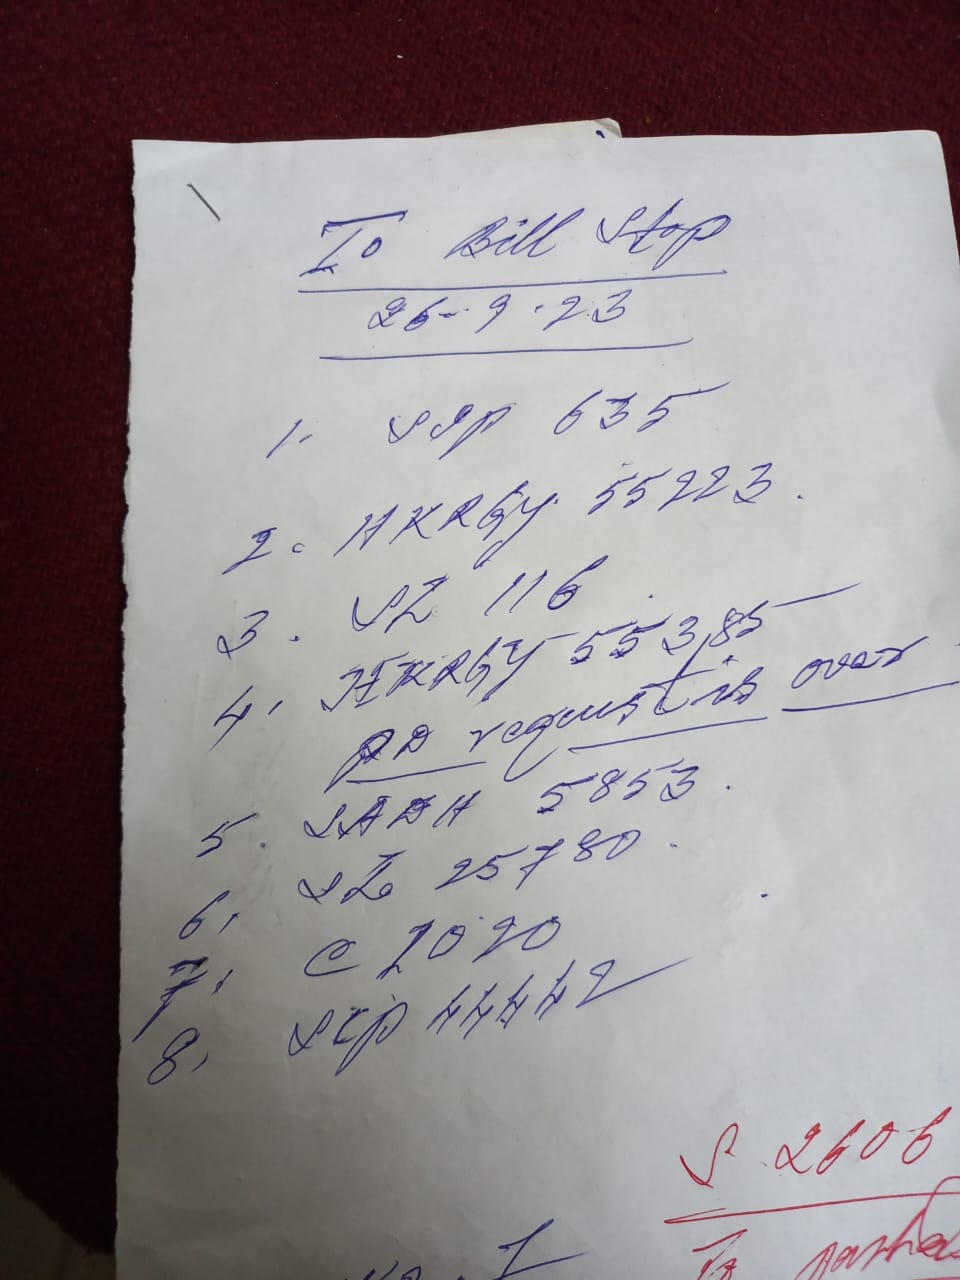 To Bill Stop
26-9-23
1. SIP 635
2. HKRGY 55223.
3. SZ 116
4. HKRGY 55385
PD request is over
5. SADH 5853.
6. SZ 25780.
7. C 2020
8. SIP 44442
S 2606